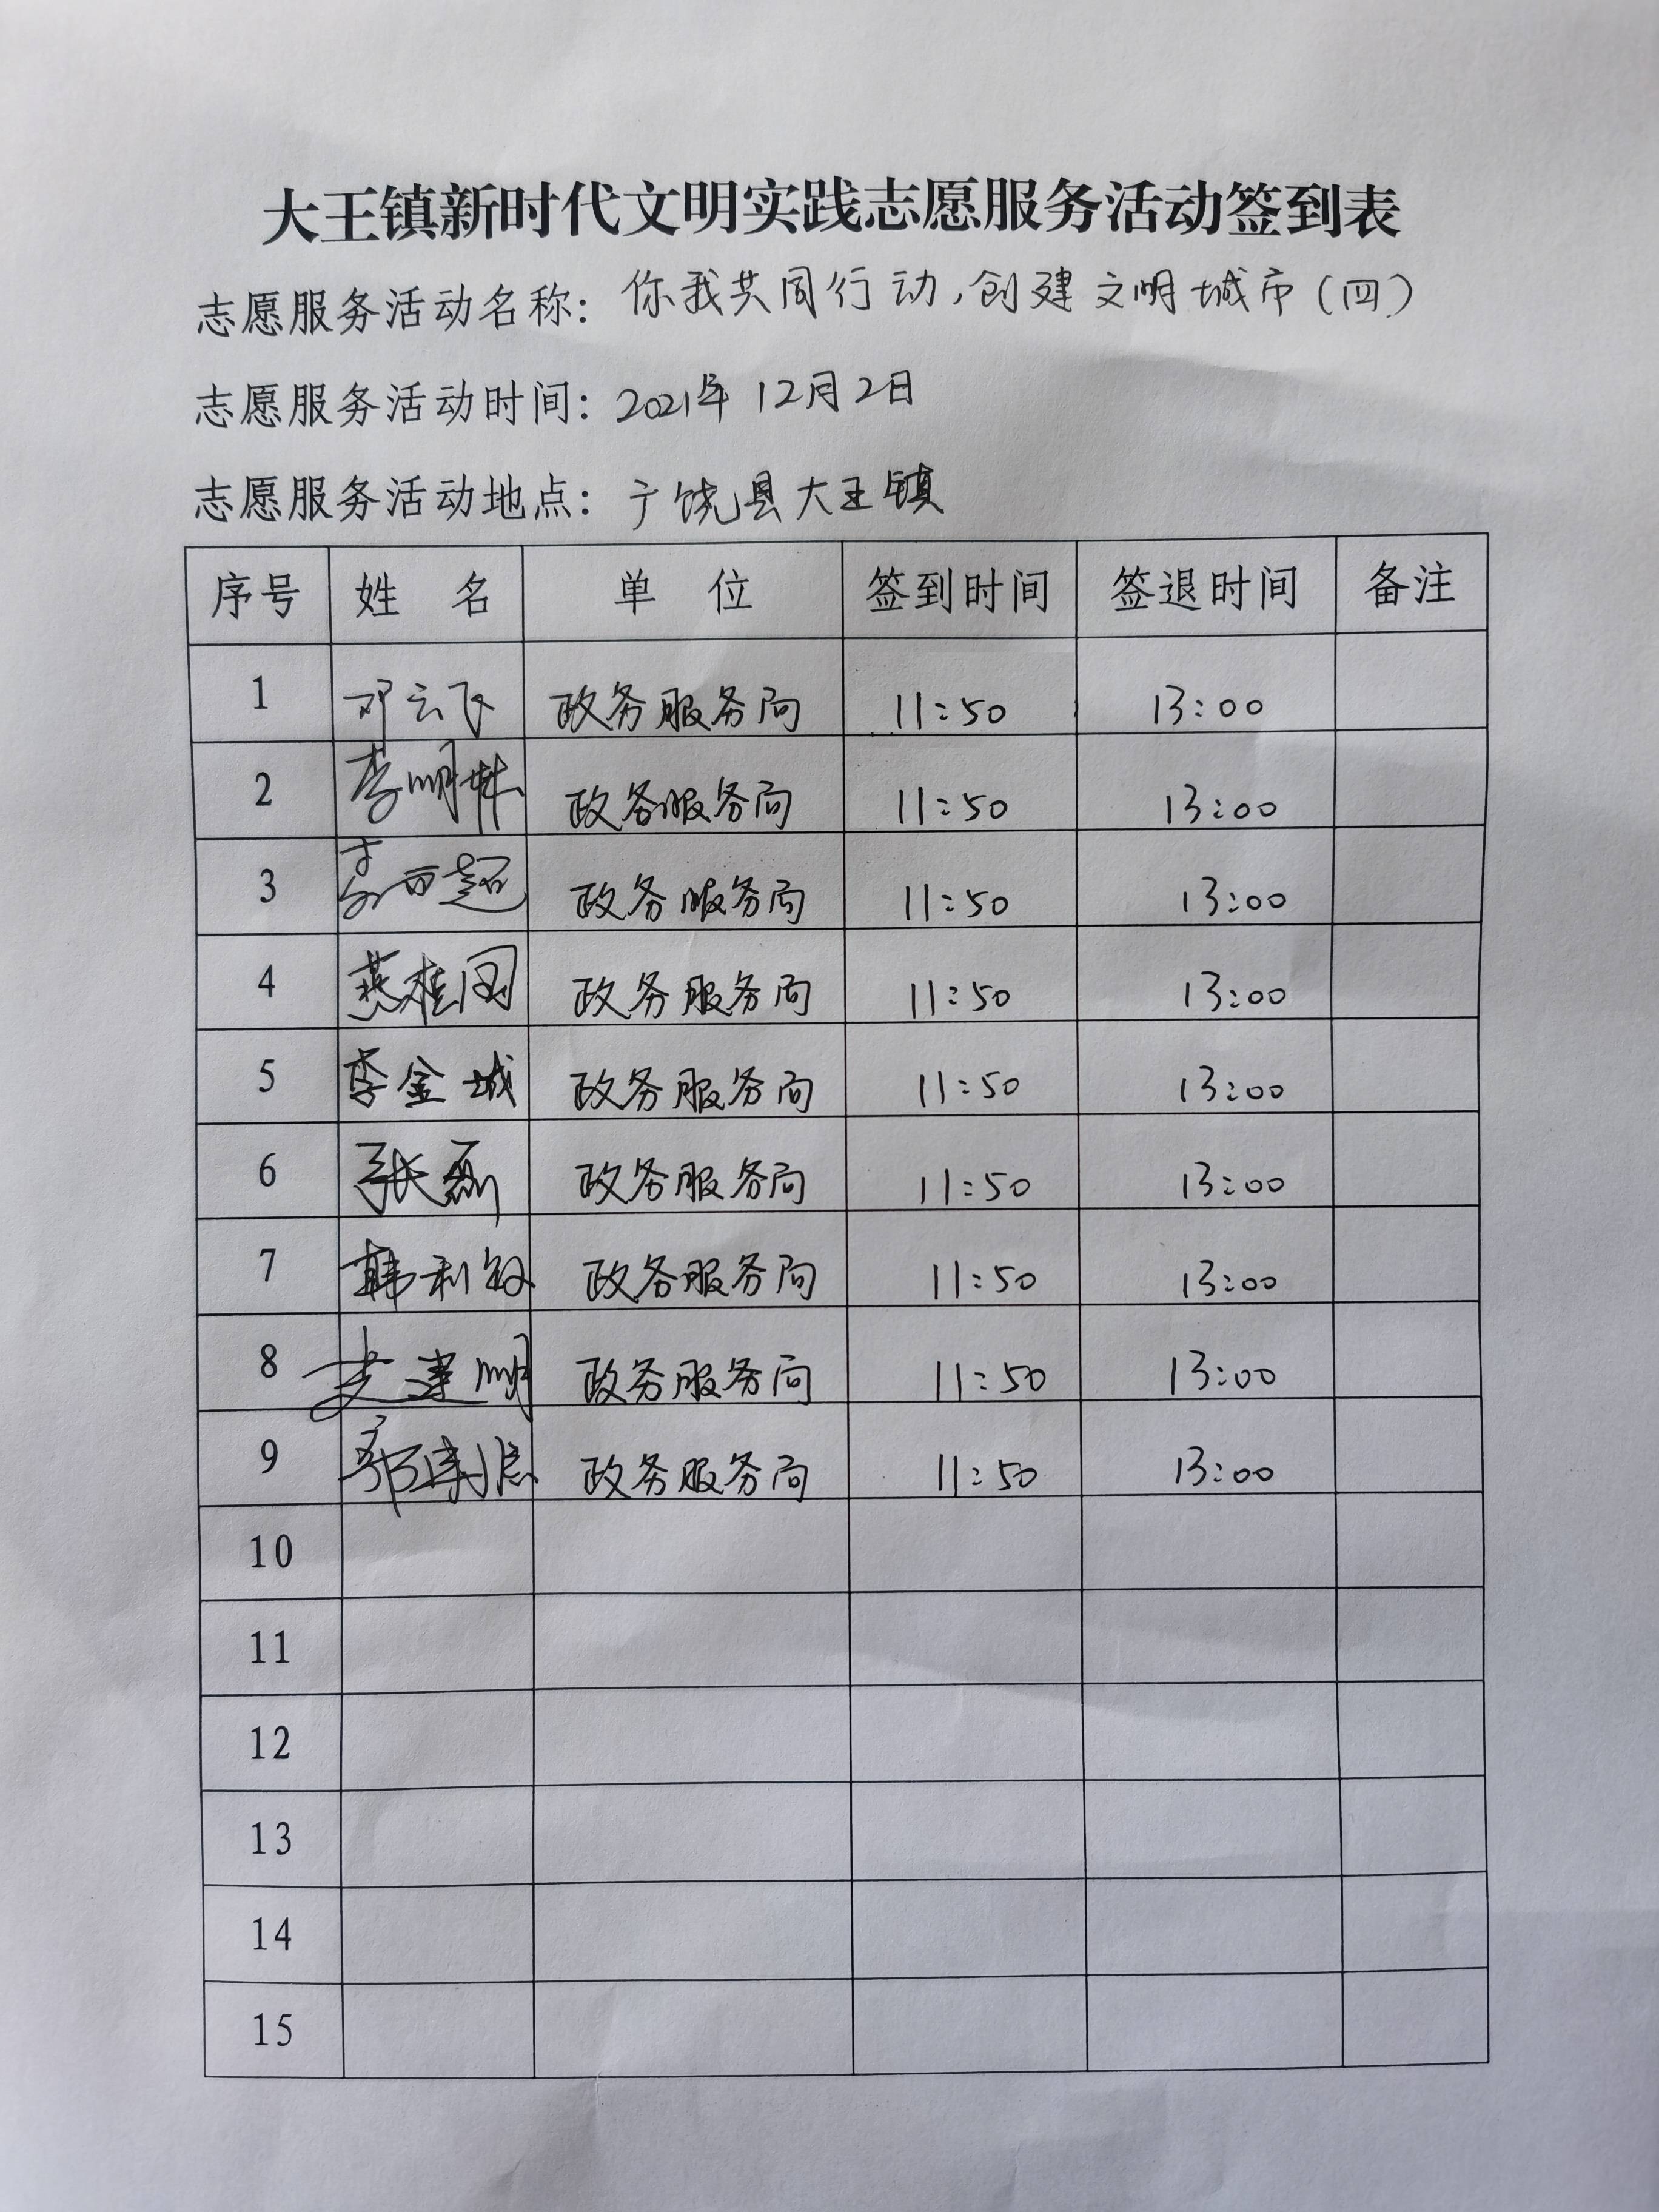 大王镇新时代文明实践志愿服务活动签到表
志愿服务活动名称：你我共同行动，创建文明城市（四）
志愿服务活动时间：2021年12月2日
志愿服务活动地点：广饶县大王镇
序号 姓 名 单 位 签到时间 签退时间 备注
1 邓云飞 政务服务局 11:50 13:00
2 李明 政务服务局 11:50 13:00
3 超 政务服务局 11:50 13:00
4 燕桂国 政务服务局 11:50 13:00
5 李金城 政务服务局 11:50 13:00
6 张磊 政务服务局 11:50 13:00
7 韩利敏 政务服务局 11:50 13:00
8 建明 政务服务局 11:50 13:00
9 政务服务局 11:50 13:00
10
11
12
13
14
15